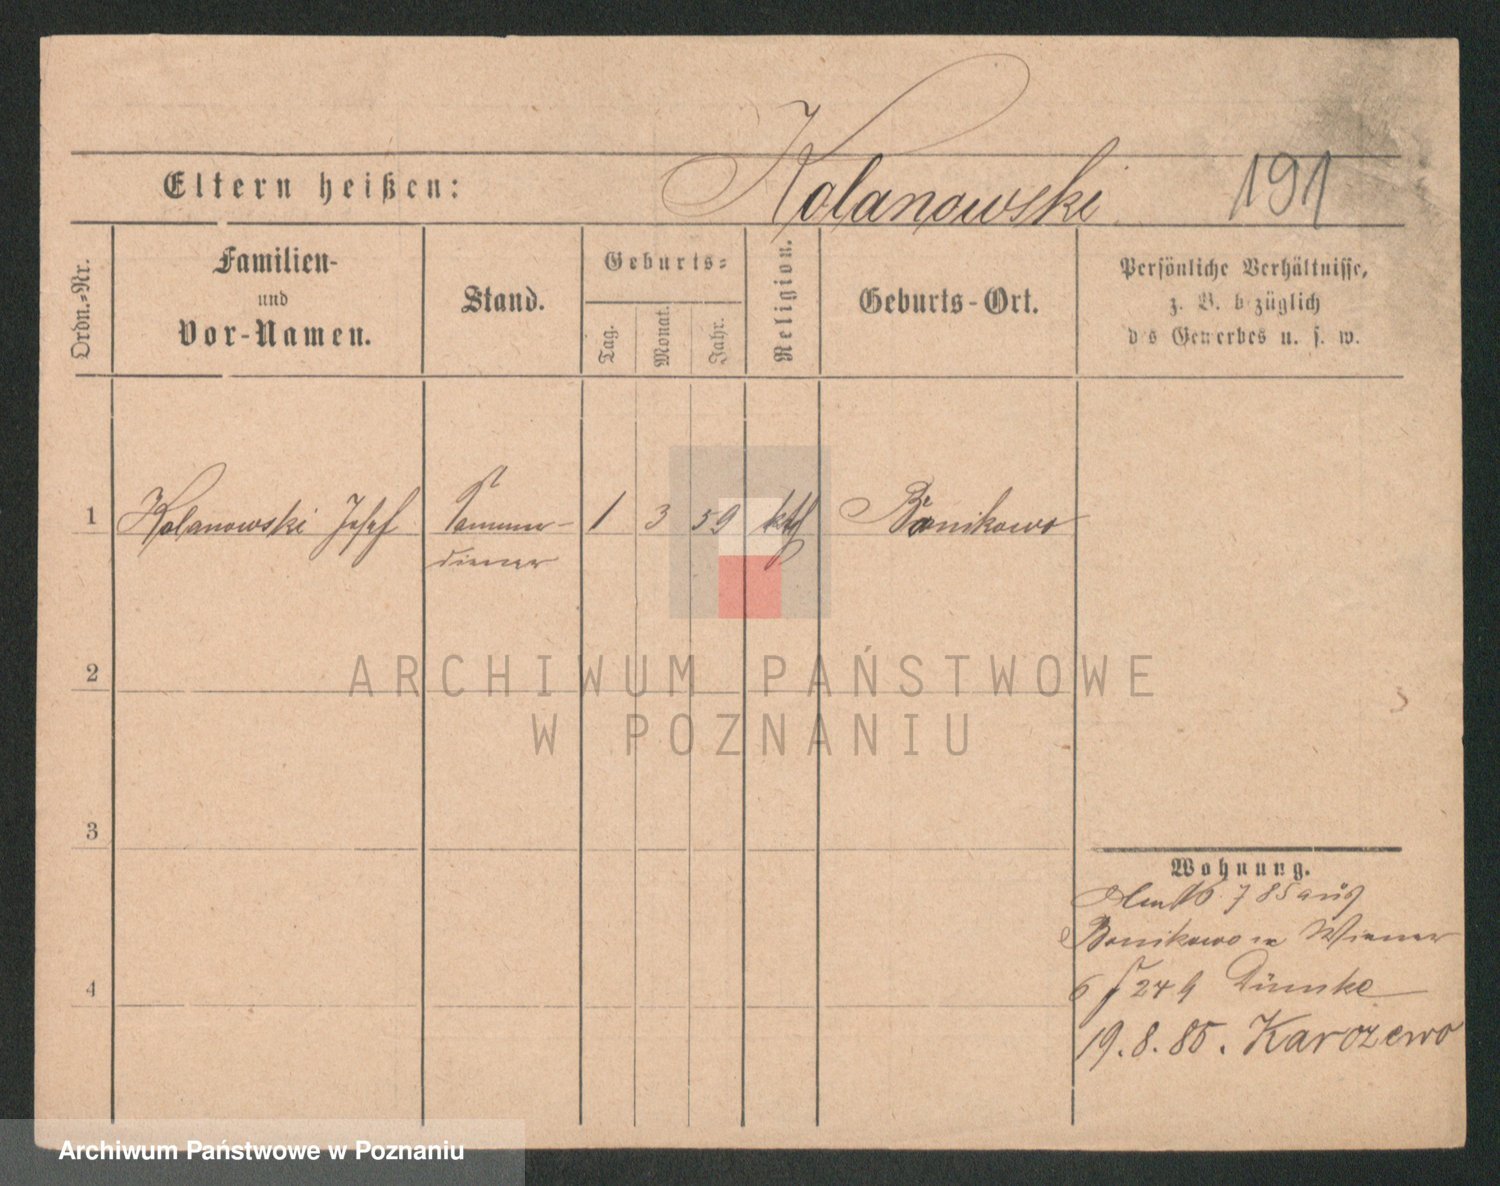 Kolanowski
191
Eltern heißen:
Ordn.=Nr.
Familien-
und
Vor-Namen.
Stand.
Geburts=
Tag.
Monat.
Jahr.
Religion.
Geburts-Ort.
Persönliche Verhältnisse,
z. B. bezüglich
des Gewerbes u. s. w.
1 Kolanowski Josef
diener
1 3 59 kth Bonikowo
2
3
4
Wohnung.
16 7 85 aus
Bonikowo
6 24 Dümke
19.8.85. Karczewo
ARCHIWUM PAŃSTWOWE
W POZNANIU
Archiwum Państwowe w Poznaniu